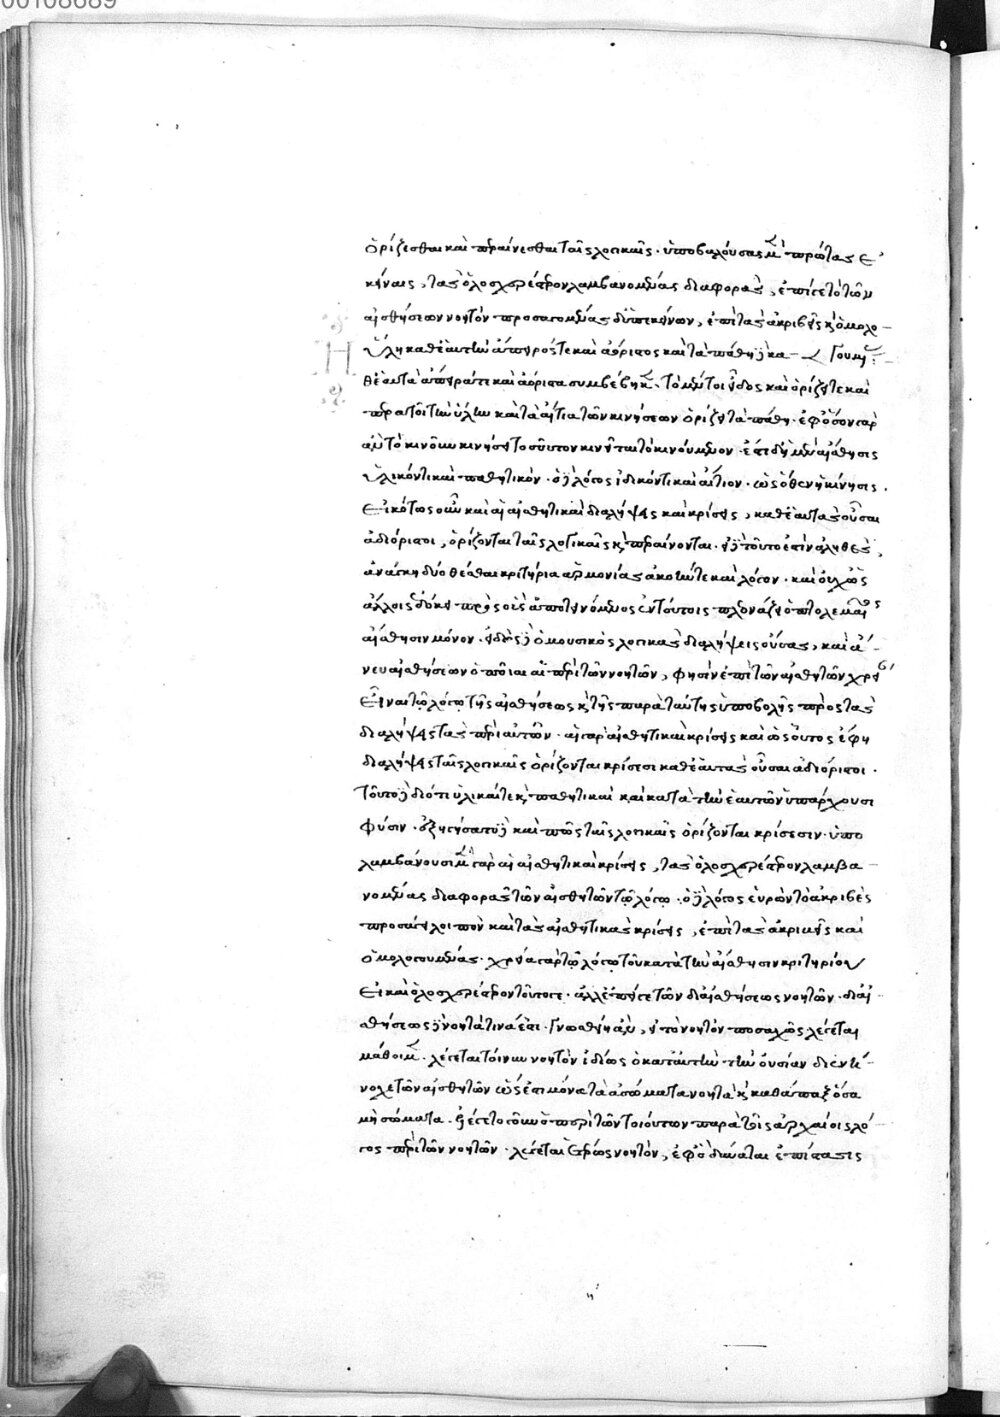 00108689
ὁρίζεσθαι καὶ περαίνεσθαι ταῖς λογικαῖς· ὑποβαλούσας μὲν πρώταις ἐ
κείναις, τὰς ὁλοσχερέστερον λαμβανομένας διαφορὰς, ἐπί γε τῶν
αἰσθήσεων νοητῶν προσαγομένας δ' ὑπ' ἐκείνων, ἐπὶ τὰς ἀκριβεῖς καὶ ὁμολο-
ὕλη καθ' ἑαυτὴν ἄπειρός τε καὶ ἀόριστος καὶ τὰ πάθη δὲ κα- γουμέ
θ' ἑαυτὰ ἄπειρά τε καὶ ἀόριστα συμβέβηκε. τὸ μέντοι εἶδος καὶ ὁρίζει τε καὶ
περατοῖ τὴν ὕλην καὶ τὰ αἴτια τῶν κινήσεων ὁρίζει τὰ πάθη· ἐφ' ὅσον γὰρ
αὐτὸ κινοῦν κινήσει τοσοῦτον κινεῖται τὸ κινούμενον· ἔστι δὴ ἡ μὲν αἴσθησις
ὑλικόν τι καὶ παθητικόν· ὁ δὲ λόγος εἰδικόν τι καὶ αἴτιον· ὡς ὅθεν ἡ κίνησις.
Εἰκότως οὖν καὶ αἱ αἰσθητικαὶ διαλήψεις καὶ κρίσεις, καθ' ἑαυτὰς οὖσαι
ἀδιόριστοι, ὁρίζονται ταῖς λογικαῖς καὶ περαίνονται· εἰ δὲ τοῦτό ἐστιν ἀληθὲς,
ἀνάγκη δύο θέσθαι κριτήρια ἁρμονίας ἀκοήν τε καὶ λόγον· καὶ οὐχ ὡς
ἄλλοις δοκεῖ πρὸς οὓς ἀποτεινόμενος ἐν τούτοις πλεονάζει ὁ πτολεμαῖος
αἴσθησιν μόνον· εἰδὼς δὲ ὁ μουσικὸς λογικὰς διαλήψεις οὔσας, καὶ ἄ-
νευ αἰσθήσεων ὁποῖαι αἱ περὶ τῶν νοητῶν, φησὶν ἐπὶ τῶν αἰσθητῶν χρεί
εἶναι τῷ λόγῳ τῆς αἰσθήσεως καὶ τῆς παρὰ ταύτης ὑποβολῆς πρὸς τὰς
διαλήψεις τὰς περὶ αὐτῶν· αἱ γὰρ αἰσθητικαὶ κρίσεις καὶ ὡς οὗτος ἔφη
διαλήψεις ταῖς λογικαῖς ὁρίζονται κρίσεσι καθ' ἑαυτὰς οὖσαι ἀδιόριστοι.
τοῦτο δὲ διότι ὑλικαί τε καὶ παθητικαὶ καὶ κατὰ τὴν ἑαυτῶν ὑπάρχουσι
φύσιν· ἐξηγήσατο δὲ καὶ πῶς ταῖς λογικαῖς ὁρίζονται κρίσεσιν· ὑπο
λαμβάνουσι μὲν γὰρ αἱ αἰσθητικαὶ κρίσεις, τὰς ὁλοσχερέστερον λαμβα-
νομένας διαφορὰς τῶν αἰσθητῶν τῷ λόγῳ· ὁ δὲ λόγος εὑρὼν τὸ ἀκριβὲς
προσάγει λοιπὸν καὶ τὰς αἰσθητικὰς κρίσεις, ἐπὶ τὰς ἀκριβεῖς καὶ
ὁμολογουμένας· χρεία γὰρ τῷ λόγῳ τοῦ κατὰ τὴν αἴσθησιν κριτηρίου
εἰ καὶ ὁλοσχερέστερον τοῦτό γε· ἀλλ' ἐπεί γε τῶν δι' αἰσθήσεως νοητῶν· δι' αἰ-
σθήσεως δὲ νοητὰ τίνα ἐστι· γνωσθείη ἂν, εἰ τὸ νοητὸν ποσαχῶς λέγεται
μάθοιμεν· λέγεται τοίνυν νοητὸν ἰδίως ὃ κατ' αὐτὴν τὴν οὐσίαν διενή-
νοχε τῶν αἰσθητῶν ὡς ἔστι μόνα τὰ ἀσώματα νοητὰ καὶ καθάπαξ ὅσα
μὴ σώματα· ὁ περὶ τῶν τοιούτων παρὰ τοῖς ἀρχαίοις λό-
γος περὶ τῶν νοητῶν· λέγεται ἑτέρως νοητὸν, ἐφ' ὃ δύναται ἐπίστασις